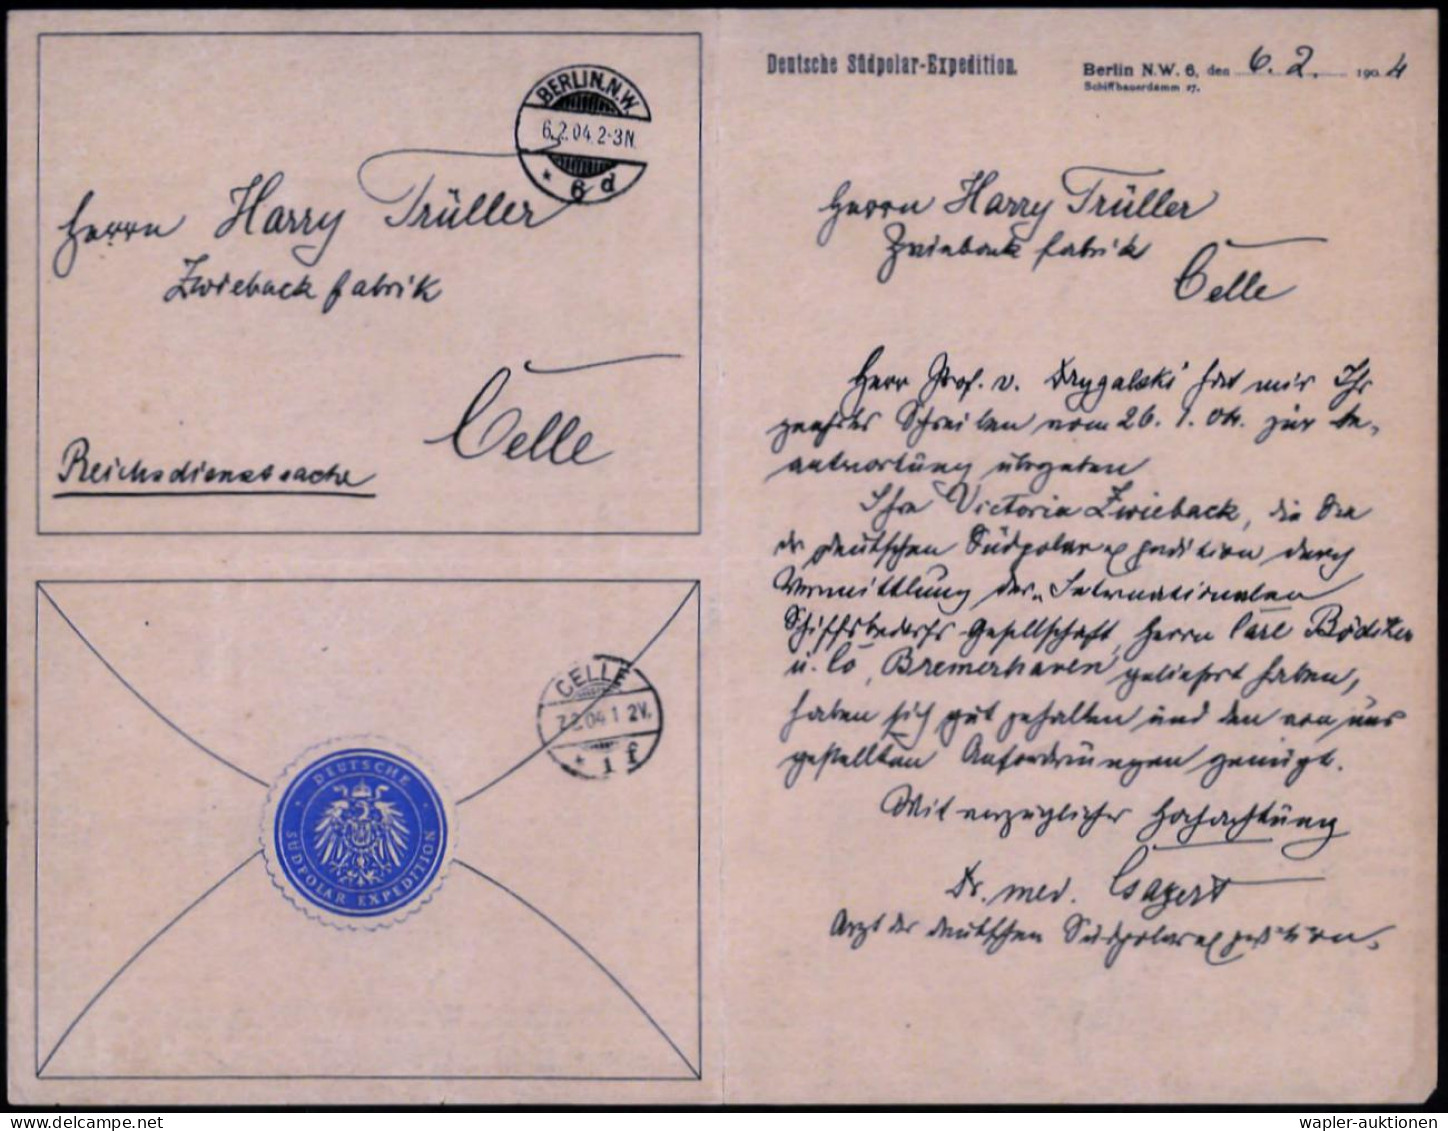 BERLIN.N.W.
6.2.04.2-3N.
* 6 d
Herrn Harry Trüller
Zwieback fabrik
Celle
Reichsdienstsache
CELLE
7.2.04.1 2V.
* 1 f
DEUTSCHE
SÜDPOLAR EXPEDITION
Deutsche Südpolar-Expedition.
Berlin N.W. 6, den 6. 2. 1904
Schiffbauerdamm 27.
Herrn Harry Trüller
Zwieback fabrik
Celle
Herr Prof. v. Drygalski hat mir Ihr
geehrtes Schreiben vom 26. 1. 04. zur be-
antwortung übergeben
Ihre Victoria Zwieback, die Sie
der deutschen Südpolarexpedition durch
Vermittlung der "Internationalen
Schiffsbedarfs Gesellschaft, Herrn Carl Bödiker
u. Co, Bremerhaven" geliefert haben,
haben sich gut gehalten und den von uns
gestellten Anforderungen genügt.
Mit vorzüglicher Hochachtung
Dr. med. Gazert
Arzt der deutschen Südpolarexpedition.
wapler-auktionen